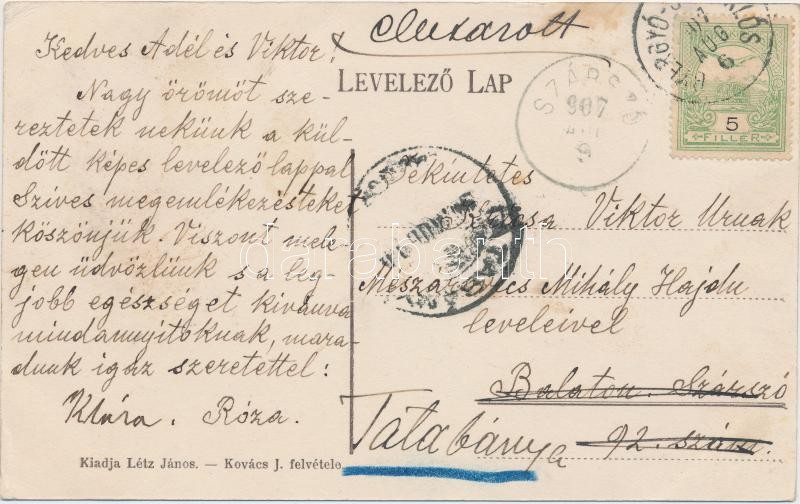 Elutazott
Kedves Adél és Viktor!
LEVELEZŐ LAP
Nagy örömöt sze-
reztetek nekünk a kül-
dött képes levelező lappal
Szíves megemlékezésteket
köszönjük. Viszont mele-
gen üdvözlünk s a leg-
jobb egészséget kivánva
mindannyitoknak, mara-
dunk igaz szeretettel:
Klára. Róza.
Kiadja Létz János. — Kovács J. felvétele
907
AUG
6
5
FILLÉR
SZÁRSZÓ
907
9
Tekintetes
Viktor Urnak
Mészarovics Mihály Hajdu
leveleivel
Balaton. Szárszó
92. szám.
Tatabánya
darabanth